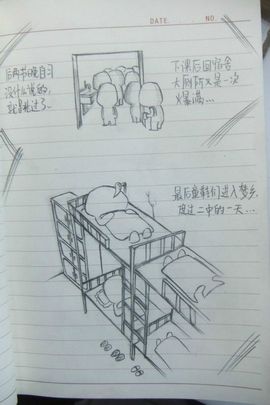 DATE NO.
后两节晚自习
没什么说的,
就是跳过了~
下课后回宿舍
大厕所又是一次
火爆满...
最后童鞋们进入梦乡
度过二中的一天...